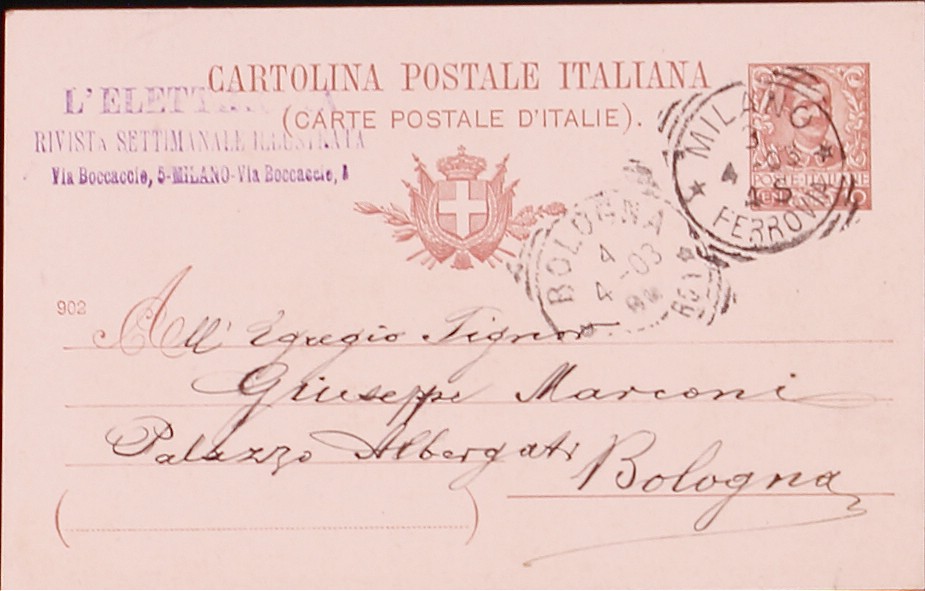 CARTOLINA POSTALE ITALIANA
(CARTE POSTALE D'ITALIE).
L'ELETTRICITA
RIVISTA SETTIMANALE ILLUSTRATA
Via Boccaccio, 5-MILANO-Via Boccaccio, 5
MILANO
FERROVIA
POSTE ITALIANE
BOLOGNA
4
4-03
902
All' Egregio Signor
Giuseppe Marconi
Palazzo Albergati
Bologna